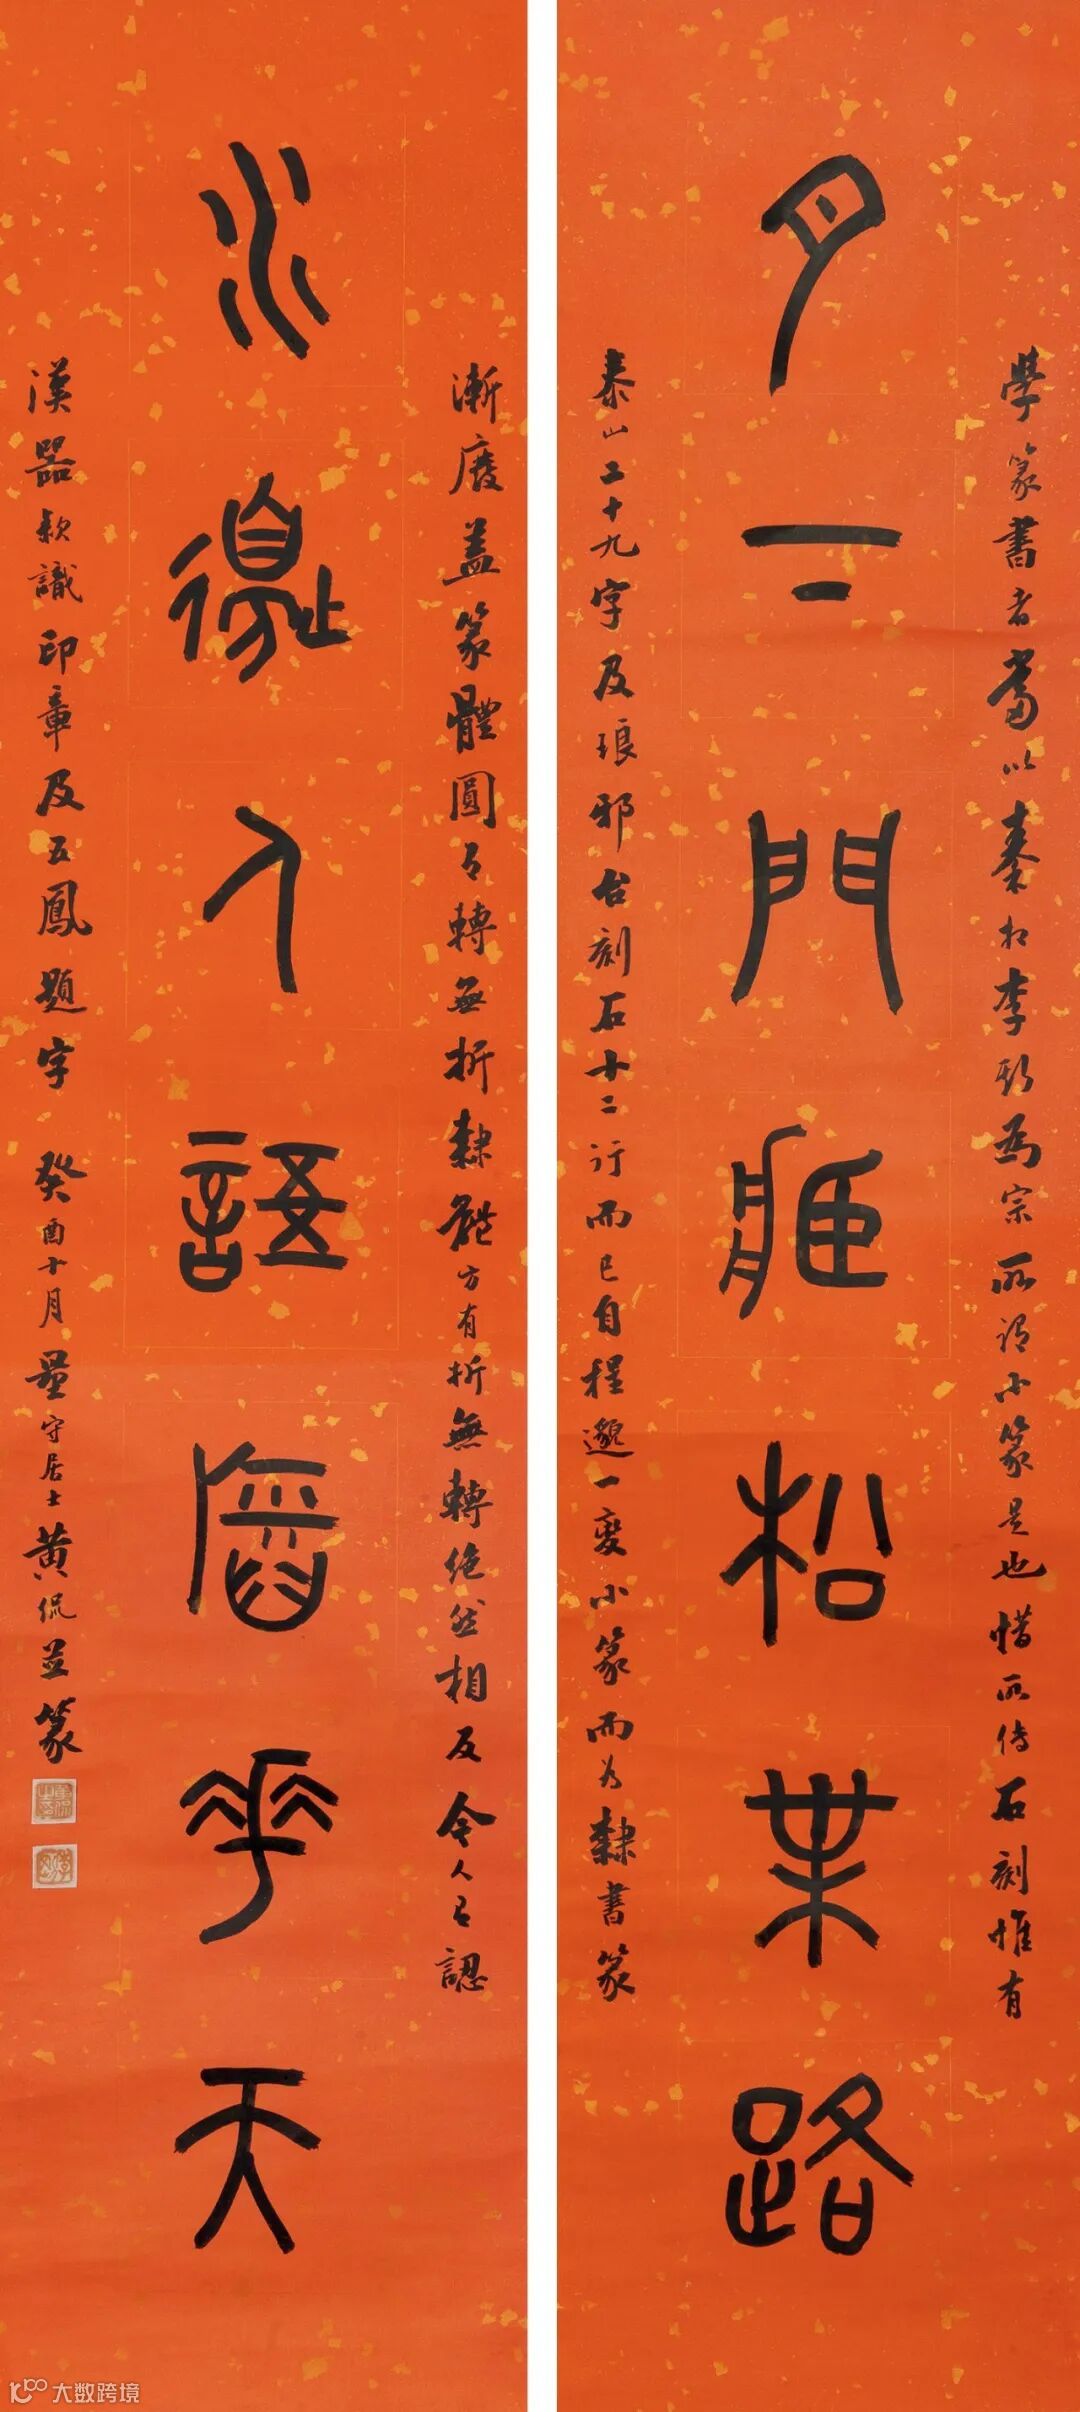 學篆書者當以秦相李斯為宗所謂小篆是也惜所傳石刻惟有
月下門松葉路
泰山二十九字及琅邪台刻石十二行而已自程邈一變小篆而为隸書篆
漸廢蓋篆體圓有轉無折隸體方有折無轉絕然相反今人有認
水邊人語華天
漢器款識印章及五鳳題字 癸酉十月量守居士黃侃並篆
大数跨境